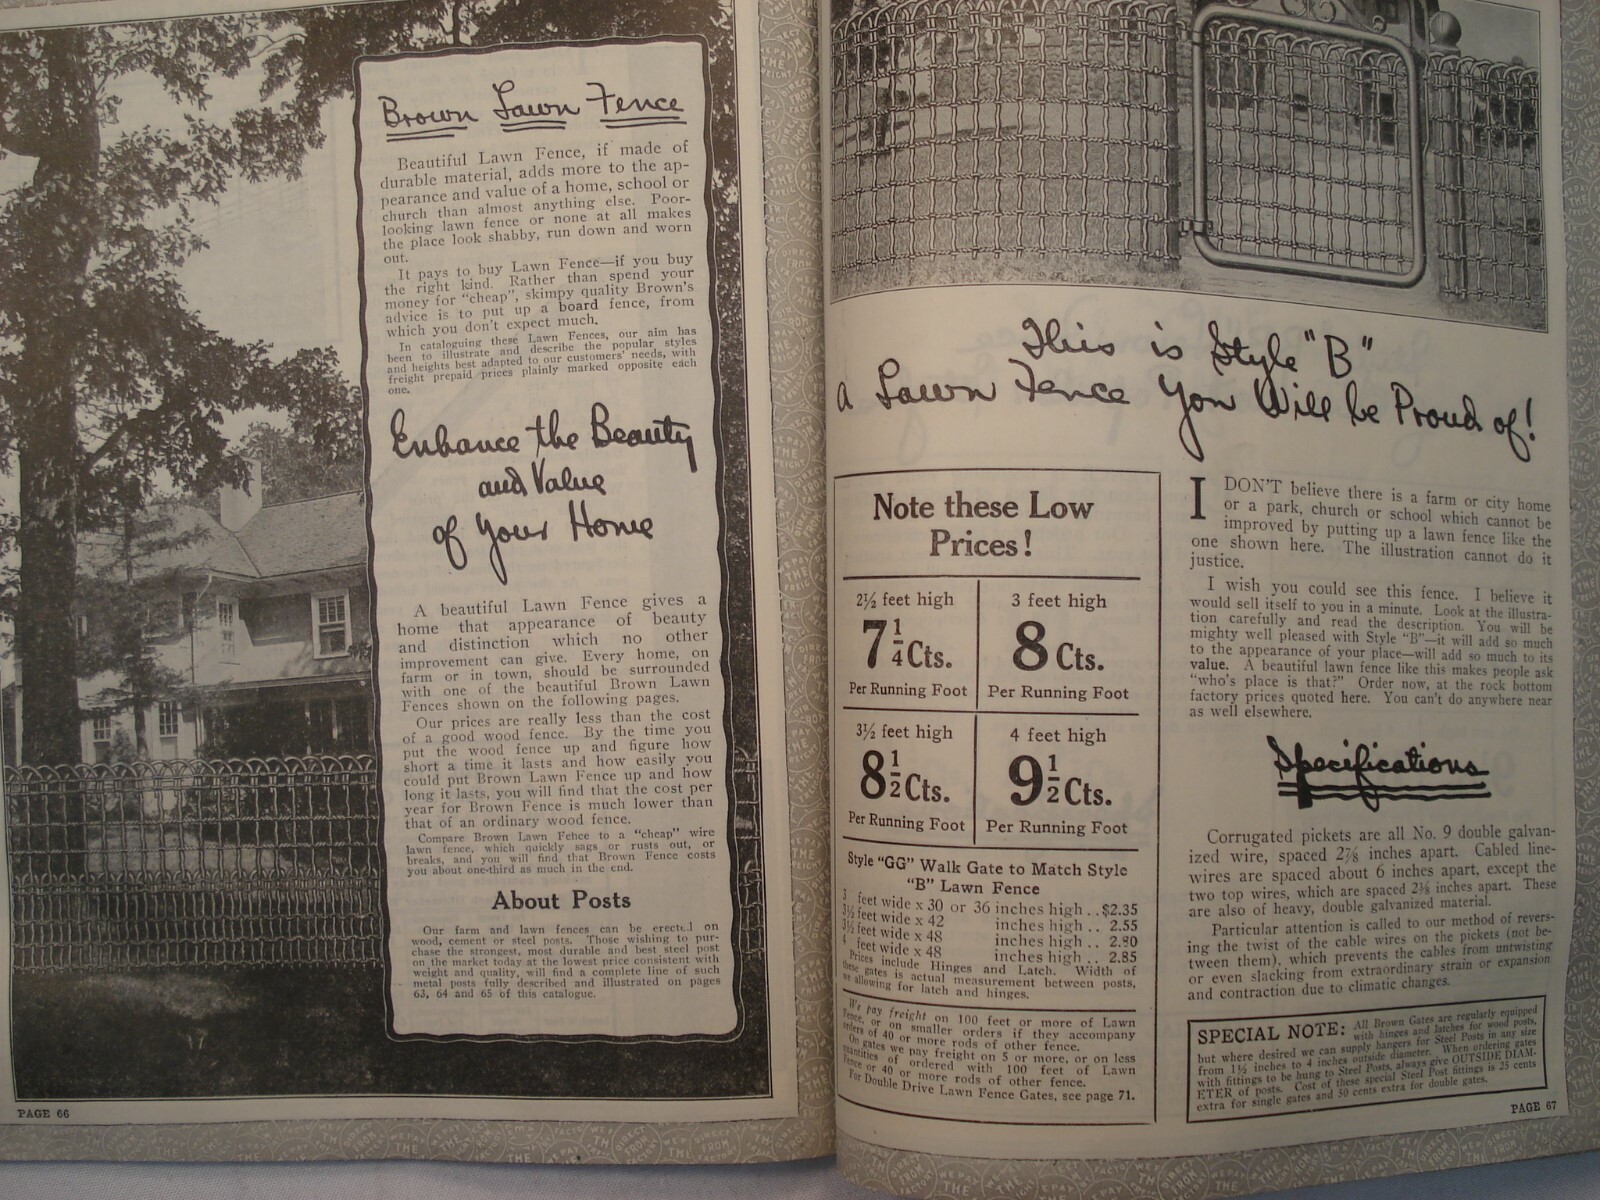 Brown Lawn Fence
Beautiful Lawn Fence, if made of
durable material, adds more to the ap-
pearance and value of a home, school or
church than almost anything else. Poor-
looking lawn fence or none at all makes
the place look shabby, run down and worn
out.
It pays to buy Lawn Fence—if you buy
the right kind. Rather than spend your
money for "cheap", skimpy quality Brown's
advice is to put up a board fence, from
which you don't expect much.
In cataloguing these Lawn Fences, our aim has
been to illustrate and describe the popular styles
and heights best adapted to our customers' needs, with
freight prepaid prices plainly marked opposite each
one.
Enhance the Beauty
and Value
of Your Home
A beautiful Lawn Fence gives a
home that appearance of beauty
and distinction which no other
improvement can give. Every home, on
farm or in town, should be surrounded
with one of the beautiful Brown Lawn
Fences shown on the following pages.
Our prices are really less than the cost
of a good wood fence. By the time you
put the wood fence up and figure how
short a time it lasts and how easily you
could put Brown Lawn Fence up and how
long it lasts, you will find that the cost per
year for Brown Fence is much lower than
that of an ordinary wood fence.
Compare Brown Lawn Fence to a "cheap" wire
lawn fence, which quickly sags or rusts out, or
breaks, and you will find that Brown Fence costs
you about one-third as much in the end.
About Posts
Our farm and lawn fences can be erected on
wood, cement or steel posts. Those wishing to pur-
chase the strongest, most durable and best steel post
on the market today at the lowest price consistent with
weight and quality, will find a complete line of such
metal posts fully described and illustrated on pages
63, 64 and 65 of this catalogue.
PAGE 66
This is Style "B"
a Lawn Fence You Will be Proud of!
Note these Low
Prices!
2½ feet high
7¼ Cts.
Per Running Foot
3 feet high
8 Cts.
Per Running Foot
3½ feet high
8½ Cts.
Per Running Foot
4 feet high
9½ Cts.
Per Running Foot
Style "GG" Walk Gate to Match Style
"B" Lawn Fence
3 feet wide x 30 or 36 inches high..$2.35
3½ feet wide x 42 inches high.. 2.55
3½ feet wide x 48 inches high.. 2.80
4 feet wide x 48 inches high.. 2.85
Prices include Hinges and Latch. Width of
these gates is actual measurement between posts,
we allowing for latch and hinges.
We pay freight on 100 feet or more of Lawn
Fence, or on smaller orders if they accompany
orders of 40 or more rods of other fence.
On gates we pay freight on 5 or more, or on less
quantities of ordered with 100 feet of Lawn
Fence or 40 or more rods of other fence.
For Double Drive Lawn Fence Gates, see page 71.
I DON'T believe there is a farm or city home
or a park, church or school which cannot be
improved by putting up a lawn fence like the
one shown here. The illustration cannot do it
justice.
I wish you could see this fence. I believe it
would sell itself to you in a minute. Look at the illustra-
tion carefully and read the description. You will be
mighty well pleased with Style "B"—it will add so much
to the appearance of your place—will add so much to its
value. A beautiful lawn fence like this makes people ask
"who's place is that?" Order now, at the rock bottom
factory prices quoted here. You can't do anywhere near
as well elsewhere.
Specifications
Corrugated pickets are all No. 9 double galvan-
ized wire, spaced 2⅞ inches apart. Cabled line-
wires are spaced about 6 inches apart, except the
two top wires, which are spaced inches apart. These
are also of heavy, double galvanized material.
Particular attention is called to our method of revers-
ing the twist of the cable wires on the pickets (not be-
tween them), which prevents the cables from untwisting
or even slacking from extraordinary strain or expansion
and contraction due to climatic changes.
SPECIAL NOTE: All Brown Gates are regularly equipped
with hinges and latches for wood posts,
but where desired we can supply hangers for Steel Posts in any size
from 1½ inches to 4 inches outside diameter. When ordering gates
with fittings to be hung to Steel Posts, always give OUTSIDE DIAM-
ETER of posts. Cost of these special Steel Post fittings is 25 cents
extra for single gates and 50 cents extra for double gates.
PAGE 67